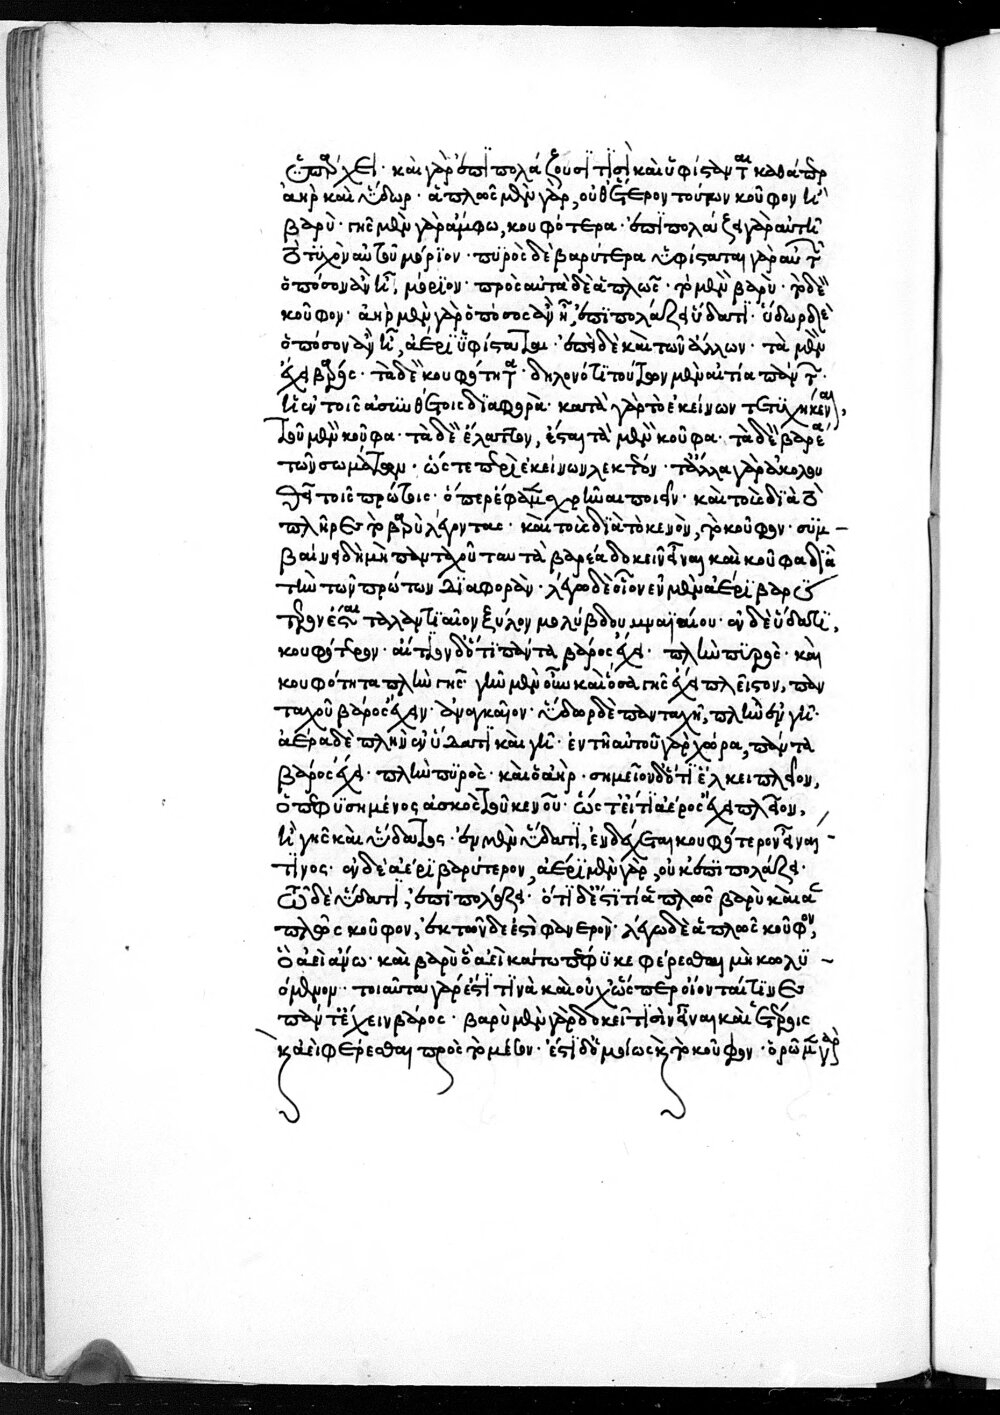 ὑπάρχει· καὶ γὰρ ἐπιπολάζουσί τισι καὶ ὑφίστανται καθάπερ
ἀὴρ καὶ ὕδωρ· ἁπλῶς μὲν γὰρ, οὐθέτερον τούτων κοῦφον ἢ
βαρύ· γῆς μὲν γὰρ ἄμφω, κουφότερα· ἐπιπολάζει γὰρ αὐτῇ
τὸ τυχὸν αὐτῶν μόριον· πυρὸς δὲ βαρύτερα ὑφίσταται γὰρ αὐτῶν
ὁπόσον ἂν ᾖ, μόριον· πρὸς αὑτὰ δὲ ἁπλῶς· τὸ μὲν βαρὺ· τὸ δὲ
κοῦφον· ἀὴρ μὲν γὰρ ὁπόσος ἂν ᾖ, ἐπιπολάζει ὕδατι· ὕδωρ δὲ
ὁπόσον ἂν ᾖ, ἀέρι ὑφίσταται· ἐπεὶ δὲ καὶ τῶν ἄλλων· τὰ μὲν
ἔχει βάρος· τὰ δὲ κουφότητα· δῆλον ὅτι τούτων μὲν αἰτία πάντων·
ἡ ἐν τοῖς ἀσυνθέτοις διαφορὰ· κατὰ γὰρ τὸ ἐκείνων τετυχηκέναι,
τοῦ μὲν κοῦφα· τὰ δὲ ἔλαττον, ἔσται τὰ μὲν κοῦφα· τὰ δὲ βαρέα
τῶν σωμάτων· ὥστε περὶ ἐκείνων λεκτέον· τἆλλα γὰρ ἀκολου
θεῖ τοῖς πρώτοις· ὅπερ ἔφαμεν χρῆναι ποιεῖν· καὶ τοὺς διὰ τὸ
πλῆρες τὸ βαρὺ λέγοντας· καὶ τοὺς διὰ τὸ κενὸν, τὸ κοῦφον· συμ-
βαίνει δὴ μὴ πανταχοῦ ταυτὰ βαρέα δοκεῖν εἶναι καὶ κοῦφα διὰ
τὴν τῶν πρώτων διαφοράν· λέγω δὲ οἷον ἐν μὲν ἀέρι βαρύ
τερον ἔσται ταλαντιαῖον ξύλον μολύβδου μναϊαίου· ἐν δὲ ὕδατι,
κουφότερον· αἴτιον δ' ὅτι πάντα βάρος ἔχει· πλὴν πυρὸς· καὶ
κουφότητα πλὴν γῆς· γῆν μὲν οὖν καὶ ὅσα γῆς ἔχει πλεῖστον, παν
ταχοῦ βάρος ἔχειν· ἀναγκαῖον· ὕδωρ δὲ πανταχῆ, πλὴν ἐν γῇ·
ἀέρα δὲ πλὴν ἐν ὕδατι καὶ γῇ· ἐν τῇ αὑτοῦ γὰρ χώρα, πάντα
βάρος ἔχει· πλὴν πυρὸς· καὶ ὁ ἀὴρ· σημεῖον δ' ὅτι ἕλκει πλεῖον,
ὁ πεφυσημένος ἀσκὸς τοῦ κενοῦ· ὥστ' εἴ τι ἀέρος ἔχει πλεῖον,
ἢ γῆς καὶ ὕδατος· ἐν μὲν ὕδατι, ἐνδέχεται κουφότερον εἶναι
τινος· ἐν δὲ ἀέρι βαρύτερον, ἀέρι μὲν γὰρ, οὐκ ἐπιπολάζει·
τῷ δὲ ὕδατι, ἐπιπολάζει· ὅτι δ' ἔστι τι ἁπλῶς βαρὺ καὶ ἁ
πλῶς κοῦφον, ἐκ τῶνδε ἐστὶ φανερὸν· λέγω δὲ ἁπλῶς κοῦφον,
ὃ ἀεὶ ἄνω· καὶ βαρὺ ὃ ἀεὶ κάτω πέφυκε φέρεσθαι μὴ κωλυ-
όμενον· τοιαῦτα γάρ ἐστί τινα καὶ οὐχ ὥσπερ οἴονταί τινες
πάντ' ἔχειν βάρος· βαρὺ μὲν γὰρ δοκεῖ τισὶν εἶναι καὶ ἑτέροις
καὶ ἀεὶ φέρεσθαι πρὸς τὸ μέσον· ἔστι δ' ὁμοίως καὶ τὸ κοῦφον· ὁρῶμεν γὰρ